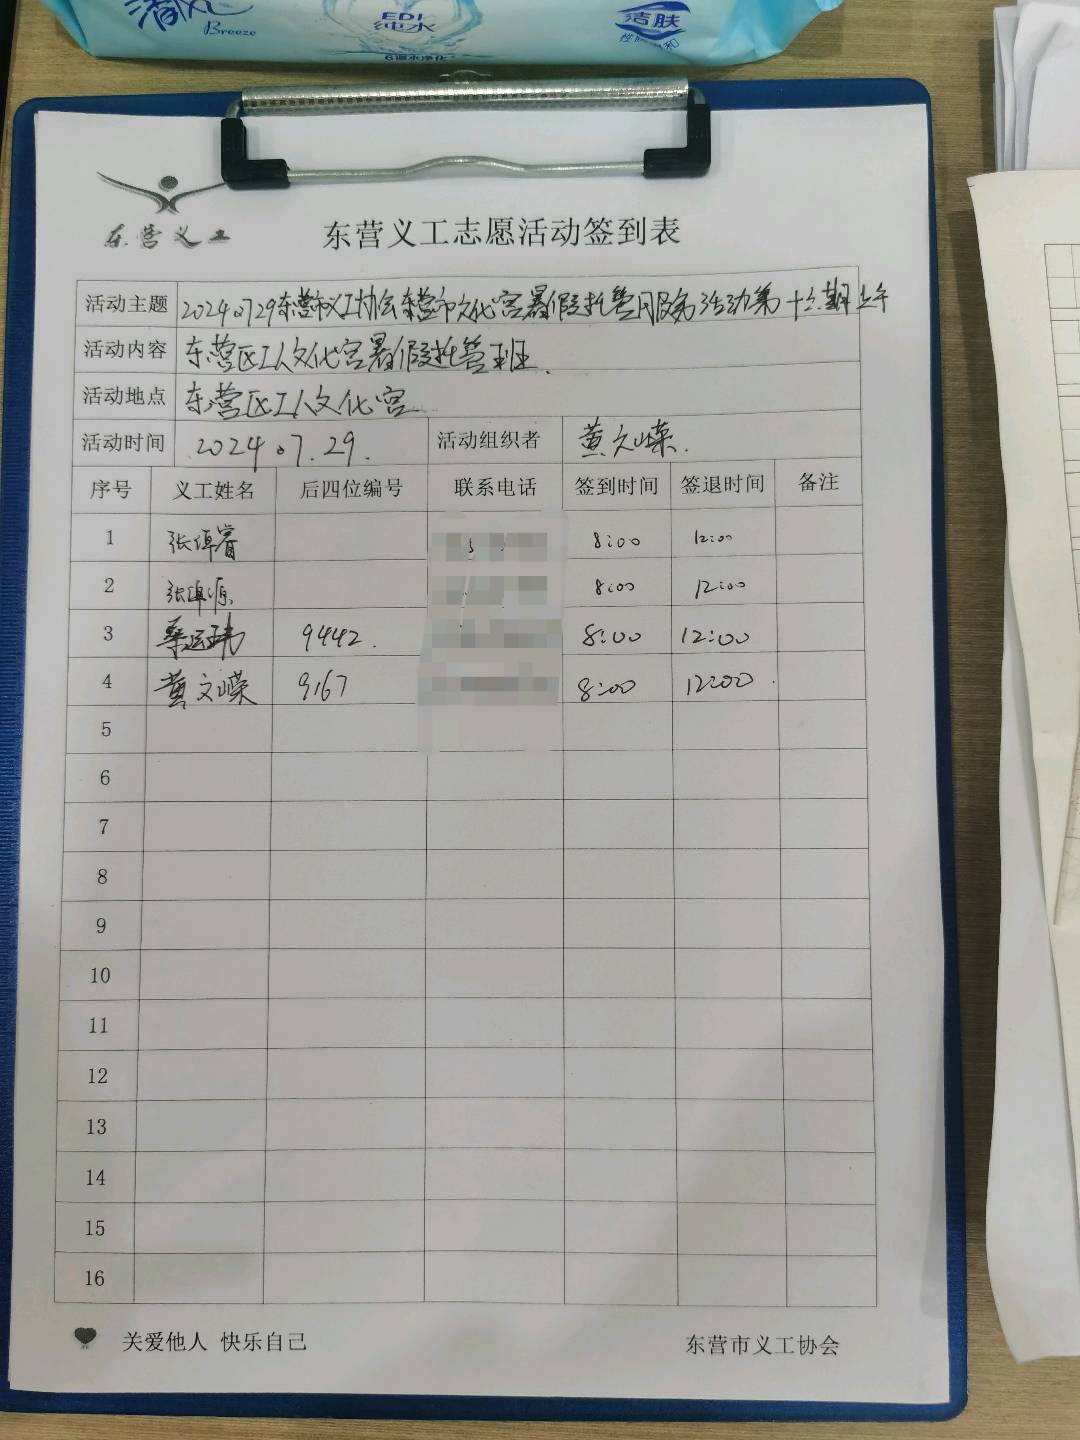 清风
Breeze
EDI
纯水
洁肤
东营义工
东营义工志愿活动签到表
活动主题 20240729东营市义工协会东营市文化宫暑假托管服务活动第十六期上午
活动内容 东营区工人文化宫暑假托管班.
活动地点 东营区工人文化宫
活动时间 2024.07.29. 活动组织者 黄文嵘.
序号 义工姓名 后四位编号 联系电话 签到时间 签退时间 备注
1 张倬睿 8:00 12:00
2 张倬源 8:00 12:00
3 桑运玮 9442. 8:00 12:00
4 黄文嵘 9167 8:00 12:00.
5
6
7
8
9
10
11
12
13
14
15
16
关爱他人 快乐自己 东营市义工协会